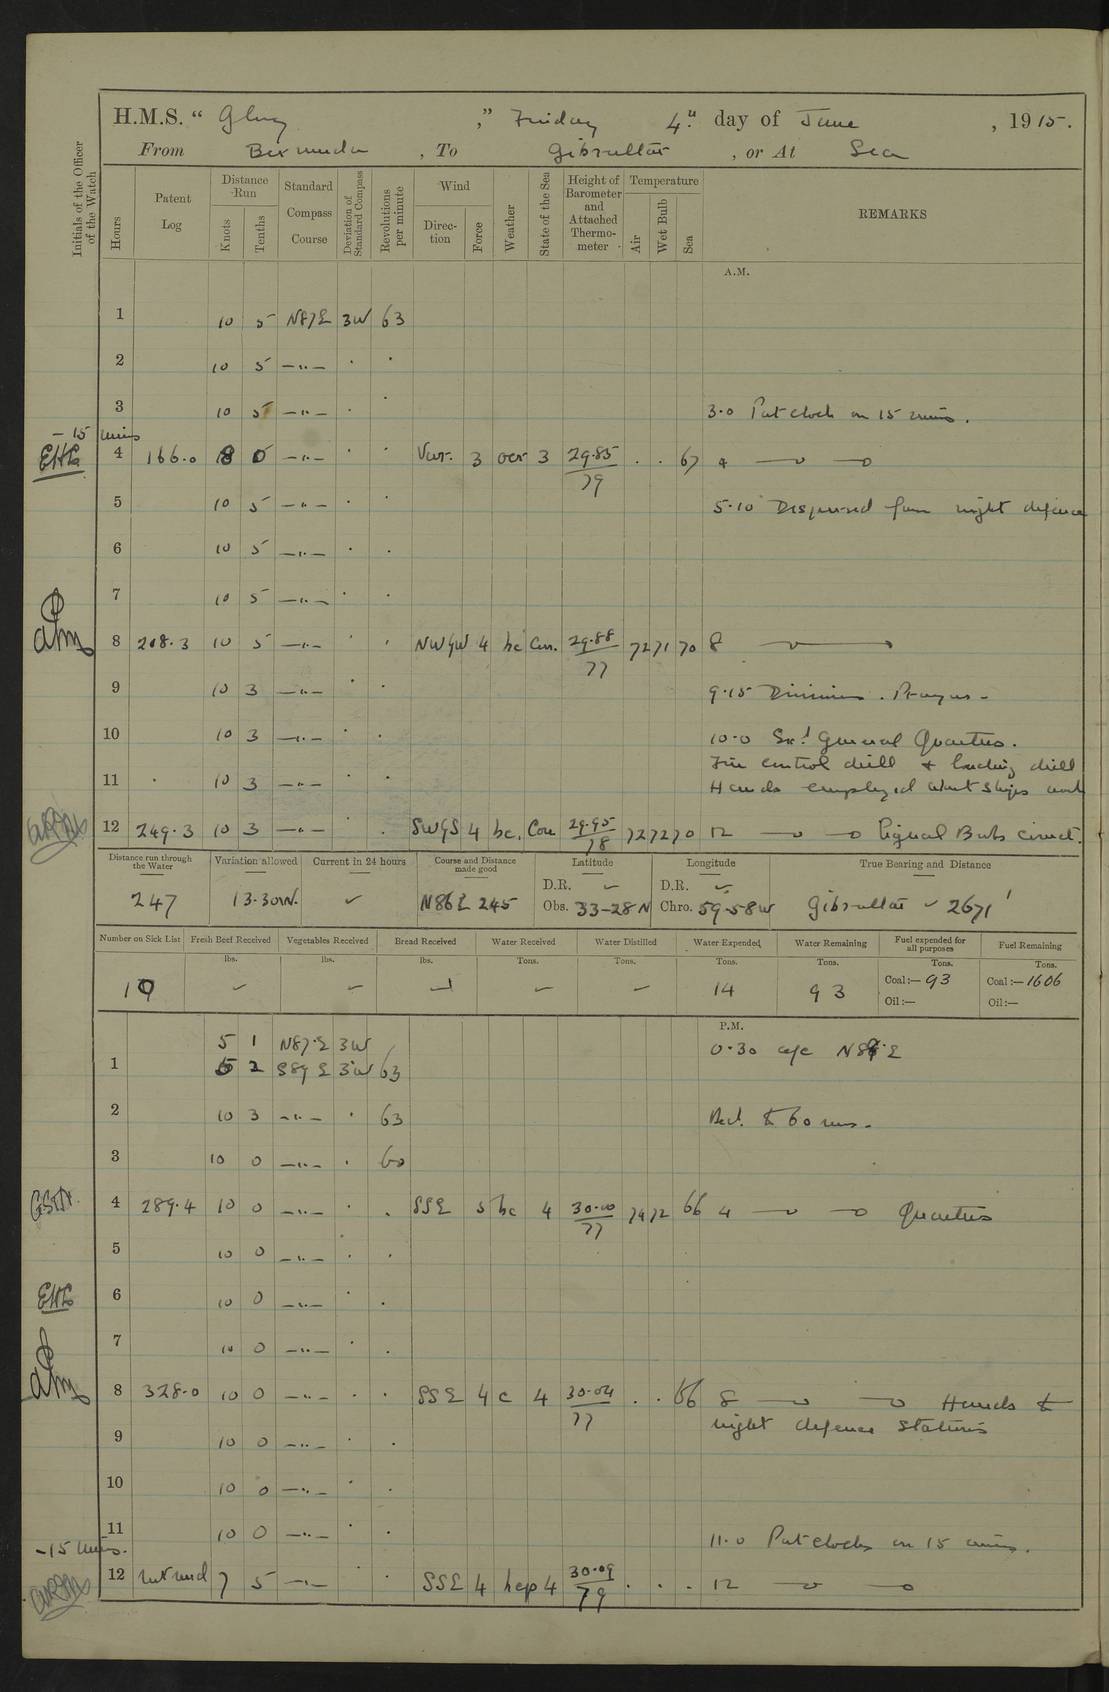 H.M.S. " Glory ," Friday 4th day of June , 1915.
From Bermuda , To Gibraltar , or At Sea
Initials of the Officer of the Watch
Hours Patent Log Distance Run Knots Tenths Standard Compass Course Deviation of Standard Compass Revolutions per minute Wind Direction Force Weather State of the Sea Height of Barometer and Attached Thermometer Temperature Air Wet Bulb Sea REMARKS
A.M.
1 10 5 N87E 3W 63
2 10 5 —"—
3 10 5 —"— 3.0 Put clock on 15 mins.
-15 mins
EHL 4 166.0 8 0 —"— Var. 3 ocr 3 29.85/79 . . 67 4
5 10 5 —"— 5.10 Dispersed from night defence
6 10 5 —"—
7 10 5 —"—
8 208.3 10 5 —"— NWyW 4 bc Con. 29.88/77 72 71 70 8
9 10 3 —"— 9.15 Divisions. Prayers -
10 10 3 —"— 10.0 General Quarters.
Fire control drill & loading drill
11 10 3 —"— Hands employed about ships work
12 249.3 10 3 —"— SWyS 4 bc. Con 29.95/78 72 72 70 12 Signal Books correct.
Distance run through the Water Variation allowed Current in 24 hours Course and Distance made good Latitude Longitude True Bearing and Distance
D.R. ✓ D.R. ✓
247 13.30W. ✓ N86E 245 Obs. 33-28N Chro. 59.58W Gibraltar ✓ 2671'
Number on Sick List Fresh Beef Received Vegetables Received Bread Received Water Received Water Distilled Water Expended Water Remaining Fuel expended for all purposes Fuel Remaining
lbs. lbs. lbs. Tons. Tons. Tons. Tons. Tons. Tons.
10 ✓ ✓ ✓ ✓ ✓ 14 93 Coal:— 93 Coal:— 1606
Oil:— Oil:—
P.M.
5 1 N87.E 3W 0.30 a/c
1 5 2 S89E 3W 63
2 10 3 —"— 63 Red. to 60 revs.
3 10 0 —"— 60
4 289.4 10 0 —"— SSE 5 bc 4 30.00/77 74 72 66 4 Quarters
5 10 0 —"—
EHL 6 10 0 —"—
7 10 0 —"—
8 328.0 10 0 —"— SSE 4 c 4 30.04/77 . . 66 8 Hands to
night defence stations
9 10 0 —"—
10 10 0 —"—
11 10 0 —"— 11.0 Put clocks on 15 mins.
-15 mins.
12 7 5 —"— SSE 4 4 30.09/79 . . . 12